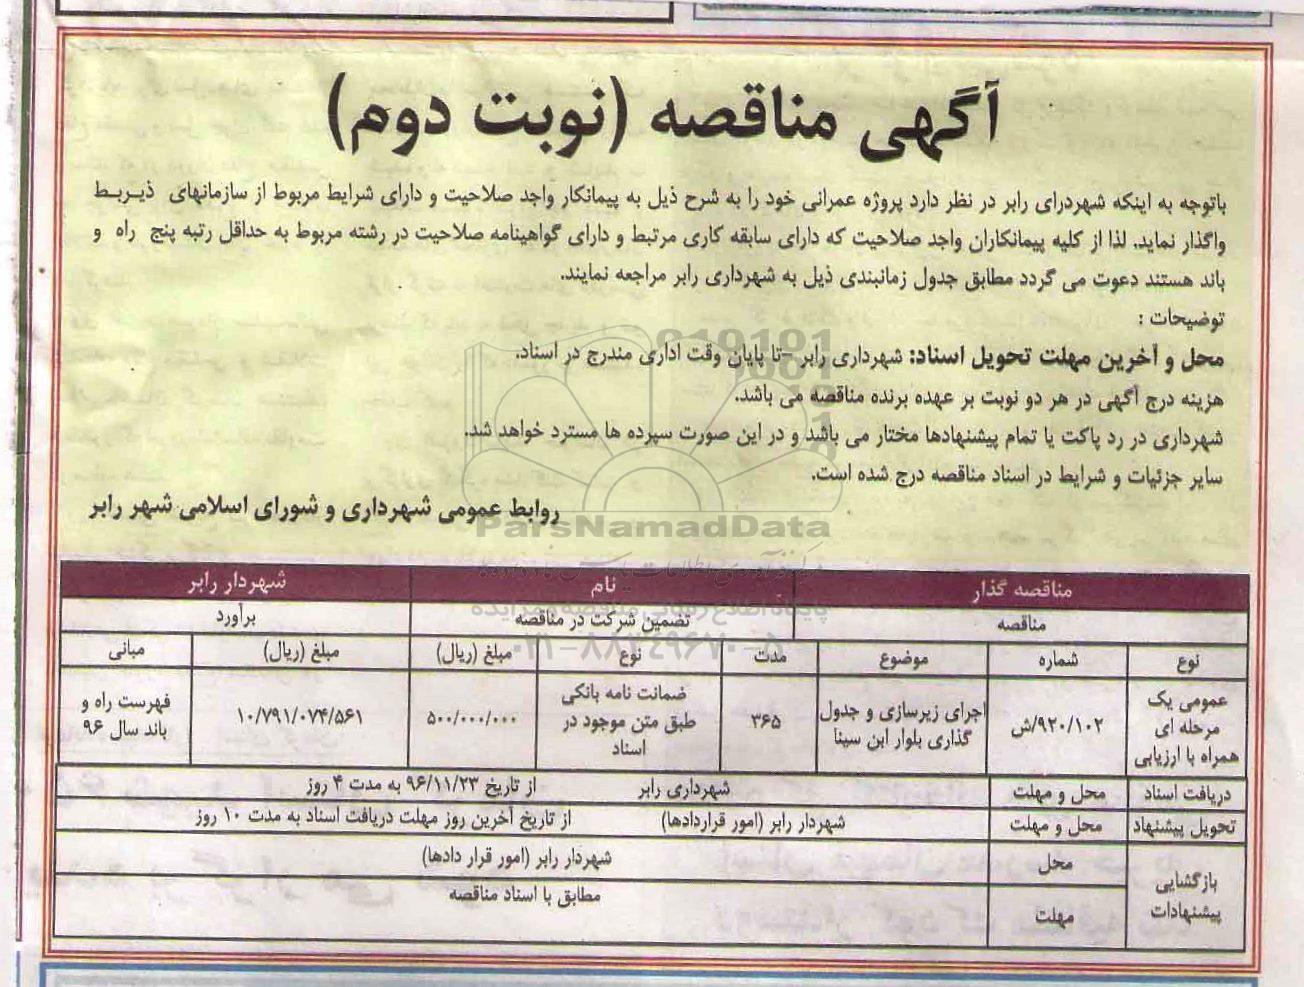 آگهی مناقصه (نوبت دوم)
باتوجه به اینکه شهردرای رابر در نظر دارد پروژه عمرانی خود را به شرح ذیل به پیمانکار واجد صلاحیت و دارای شرایط مربوط از سازمانهای ذیربط
واگذار نماید. لذا از کلیه پیمانکاران واجد صلاحیت که دارای سابقه کاری مرتبط و دارای گواهینامه صلاحیت در رشته مربوط به حداقل رتبه پنج راه و
باند هستند دعوت می گردد مطابق جدول زمانبندی ذیل به شهرداری رابر مراجعه نمایند.
توضیحات :
محل و آخرین مهلت تحویل اسناد: شهرداری رابر -تا پایان وقت اداری مندرج در اسناد.
هزینه درج آگهی در هر دو نوبت بر عهده برنده مناقصه می باشد.
شهرداری در رد پاکت یا تمام پیشنهادها مختار می باشد و در این صورت سپرده ها مسترد خواهد شد.
سایر جزئیات و شرایط در اسناد مناقصه درج شده است.
روابط عمومی شهرداری و شورای اسلامی شهر رابر
ParsNamadData
مناقصه گذار نام شهردار رابر
مناقصه تضمین شرکت در مناقصه برآورد
نوع شماره موضوع مدت نوع مبلغ (ریال) مبلغ (ریال) مبانی
عمومی یک ضمانت نامه بانکی
مرحله ای ۹۲۰/۱۰۲/ش اجرای زیرسازی و جدول ۳۶۵ طبق متن موجود در ۵۰۰/۰۰۰/۰۰۰ ۱۰/۷۹۱/۰۷۴/۵۶۱ فهرست راه و
همراه با ارزیابی گذاری بلوار ابن سینا اسناد باند سال ۹۶
دریافت اسناد محل و مهلت شهرداری رابر از تاریخ ۹۶/۱۱/۲۳ به مدت ۴ روز
تحویل پیشنهاد محل و مهلت شهردار رابر (امور قراردادها) از تاریخ آخرین روز مهلت دریافت اسناد به مدت ۱۰ روز
بازگشایی محل شهردار رابر (امور قرار دادها)
پیشنهادات مهلت مطابق با اسناد مناقصه